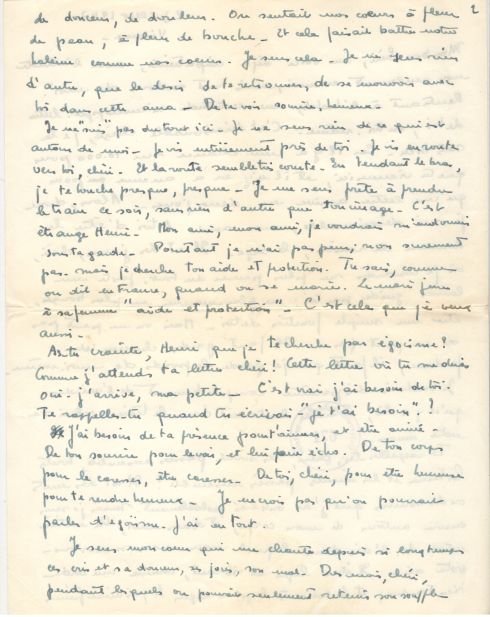 2
de douceur, de douleur. On sentait nos cœurs à fleur
de peau, à fleur de bouche. Et cela faisait battre notre
haleine comme nos cœurs. Je sens cela. Je ne sens rien
d'autre, que le désir de te retrouver, de se mouvoir avec
toi dans cette . De te voir sourire, heureux.
Je ne "suis" pas du tout ici. Je ne sens rien de ce qui est
autour de moi. Je vis entièrement près de toi. Je vis en route
vers toi, chéri. Et la route semble très courte. En tendant le bras,
je te touche presque, presque. Je me sens prête à prendre
le train ce soir, sans rien d'autre que ton image. C'est
étrange Henri. Mon ami, mon ami, je voudrais m'endormir
sous ta garde. Pourtant je n'ai pas peur, non surement
pas. mais je cherche ton aide et protection. Tu sais, comme
on dit en France, quand on se marie. Le mari jure
à sa femme "aide et protection". C'est cela que je veux
aussi.
As-tu crainte, Henri que je te cherche par égoïsme?
Comme j'attends ta lettre chéri! Cette lettre où tu me dirais
oui. j'arrive, ma petite. C'est vrai j'ai besoin de toi.
Te rappelles-tu quand tu écrivais "je t'ai besoin".?
J'ai besoin de ta présence pour t'aimer, et être aimée.
De ton sourire pour le voir, et lui faire écho. De ton corps
pour le caresser, être caressée. De toi, chéri, pour être heureuse
pour te rendre heureux. Je ne crois pas qu'on pourrait
parler d'egoïsme. J'ai eu tort.
Je sens mon cœur qui me chante depuis si longtemps
ces cris et sa douceur, ses joies, son mal. Des mois, chéri,
pendant lesquels on pouvait seulement retenir son souffle